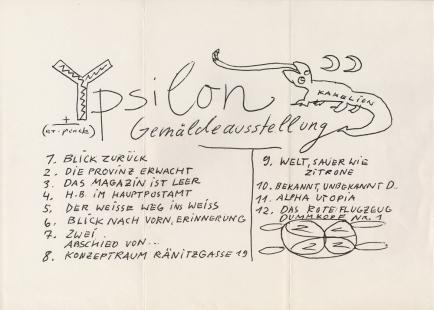 Ypsilon
(a.r. penck)
KAMELION
Gemäldeausstellung
1. BLICK ZURÜCK
2. DIE PROVINZ ERWACHT
3. DAS MAGAZIN IST LEER
4. H.B. IM HAUPTPOSTAMT
5. DER WEISSE WEG INS WEISS
6. BLICK NACH VORN, ERINNERUNG
7. ZWEI
ABSCHIED VON...
8. KONZEPTRAUM RÄNITZGASSE 19
9. WELT, SAUER WIE
ZITRONE
10. BEKANNT, UNBEKANNT D..
11. ALPHA UTOPIA
12. DAS ROTE FLUGZEUG
DUMMKOPF NR. 1